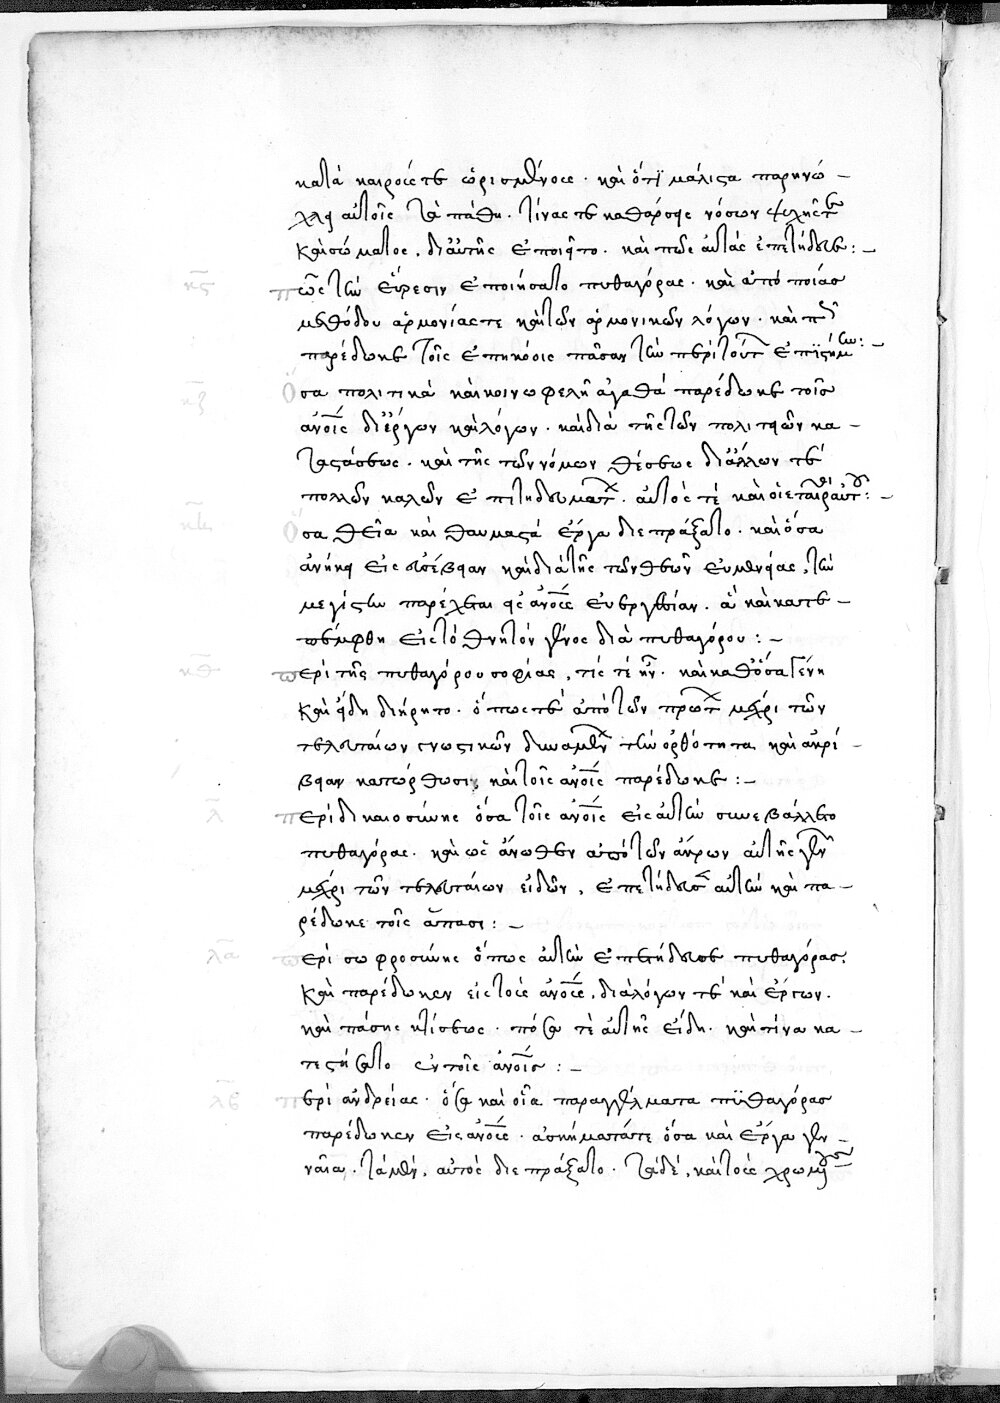 κατὰ καιροὺς τε ὡρισμένους · καὶ ὅτϊ μάλιστα παρηνώ –
χλει αὐτοῖς τὰ πάθη · τίνας τε καθάρσεις νόσων ψυχῆς τε
καὶ σώματος, δι αὐτῆς ἐποιεῖτο · καὶ πῶς αὐτὰς ἐπετήδευε : –
κϛ πῶς τὴν εὕρεσιν ἐποιήσατο πυθαγόρας · καὶ ἀπὸ ποίας
μεθόδου ἁρμονίας τε καὶ τῶν ἁρμονικῶν λόγων · καὶ πῶς
παρέδωκε τοῖς ἐπηκόοις πᾶσαν τὴν περὶ τούτων ἐπϊστήμην : –
κζ Ὅσα πολιτικὰ καὶ κοινωφελῆ ἀγαθὰ παρέδωκε τοῖς
ἀνοις δι ἔργων καὶ λόγων · καὶ διὰ τῆς τῶν πολιτειῶν κα –
ταστάσεως · καὶ τῆς τῶν νόμων θέσεως δι ἄλλων τε
πολλῶν καλῶν ἐπιτηδευμάτων · αὐτός τὲ καὶ οἱ ἑταῖροι αὐτοῦ : –
κη Ὅσα θεῖα καὶ θαυμαστὰ ἔργα διεπράξατο · καὶ ὅσα
ἀνήκει εἰς εὐσέβειαν καὶ διὰ τῆς τῶν θεῶν εὐμενείας, τὴν
μεγίστην παρέχεται εἰς ἀνους εὐεργεσίαν · ἃ καὶ κατε –
πέμφθη εἰς τὸ θνητὸν γένος διὰ πυθαγόρου : –
κθ περὶ τῆς πυθαγόρου σοφίας, τίς τὲ ἦν · καὶ καθ ὅσα γένη
καὶ εἴδη διήρητο · ὅπως τὲ ἀπὸ τῶν πρώτων μέχρι τῶν
τελευταίων γνωστικῶν δυνάμεων τὴν ὀρθότητα καὶ ἀκρί –
βειαν κατώρθωσιν, καὶ τοῖς ἀνοις παρέδωκε : –
λ περὶ δικαιοσύνης ὅσα τοῖς ἀνοις εἰς αὐτὴν συνεβάλλετο
πυθαγόρας · καὶ ὡς ἄνωθεν ἀπὸ τῶν ἄκρων αὐτῆς γενῶν
μέχρι τῶν τελευταίων εἰδῶν, ἐπετήδευσεν αὐτὴν καὶ πα –
ρέδωκε τοῖς ἅπασι : –
λα περὶ σωφροσύνης ὅπως αὐτὴν ἐπετήδευσε πυθαγόρας.
καὶ παρέδωκεν εἰς τοὺς ἀνους, διὰ λόγων τὲ καὶ ἔργων ·
καὶ πάσης κτίσεως · πόσα τὲ αὐτῆς εἴδη · καὶ τίνα κα –
τεστήσατο ἐν τοῖς ἀνοις : –
λβ περὶ ἀνδρείας · ὅσα καὶ οἷα παραγγέλματα πϋθαγόρας
παρέδωκεν εἰς ἀνους · ἀσκήματά τε ὅσα καὶ ἔργα γεν –
ναῖα · τὰ μὲν, αὐτὸς διεπράξατο · τὰ δὲ, καὶ τοὺς χρωμένους